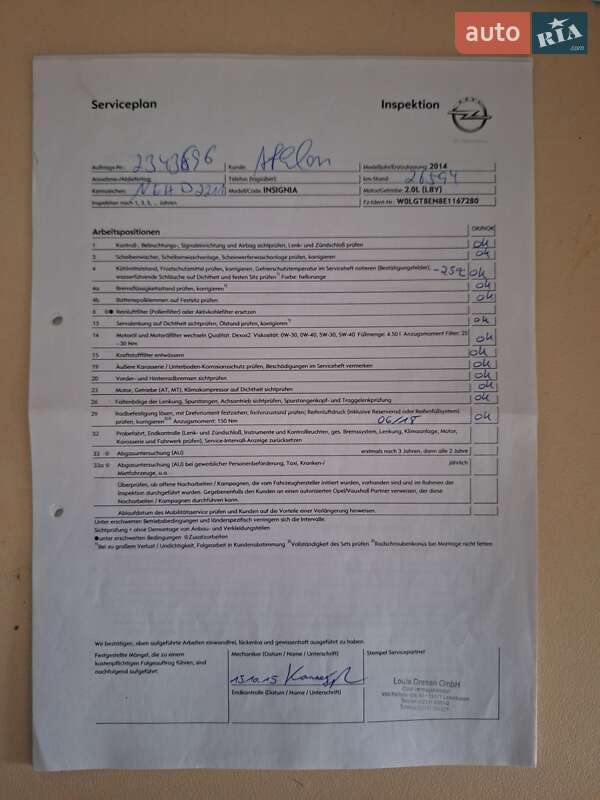 auto RIA .com
Serviceplan
Inspektion
Auftrags-Nr.: 2343696
Kunde: Athlon
Modelljahr/Erstzulassung: 2014
Annahme-/Ablieferttag:
Telefon (tagsüber):
km-Stand: 26594
Kennzeichen:
Modell/Code: INSIGNIA
Motor/Getriebe: 2.0L (LBY)
Inspektion nach 1, 3, 5, ... Jahren
Fz-Ident-Nr.: W0LGT8EN8E1167280
Arbeitspositionen
OK/NOK
1 Kontroll-, Beleuchtungs-, Signaleinrichtung und Airbag sichtprüfen, Lenk- und Zündschloß prüfen ok
3 Scheibenwischer, Scheibenwaschanlage, Scheinwerferwaschanlage prüfen, korrigieren ok
4 Kühlmittelstand, Frostschutzmittel prüfen, korrigieren, Gefrierschutztemperatur im Serviceheft notieren (Bestätigungsfelder), wasserführende Schläuche auf Dichtheit und festen Sitz prüfen Farbe: hellorange -25° ok
4a Bremsflüssigkeitsstand prüfen, korrigieren 1) ok
4b Batteriepolklemmen auf Festsitz prüfen ok
6 Reinluftfilter (Pollenfilter) oder Aktivkohlefilter ersetzen
13 Servolenkung auf Dichtheit sichtprüfen; Ölstand prüfen, korrigieren 1) ok
14 Motoröl und Motorölfilter wechseln Qualität: Dexos2 Viskosität: 0W-30, 0W-40, 5W-30, 5W-40 Füllmenge: 4.50 l Anzugsmoment Filter: 25 - 30 Nm ok
15 Kraftstofffilter entwässern ok
19 Äußere Karosserie / Unterboden-Korrosionsschutz prüfen, Beschädigungen im Serviceheft vermerken ok
20 Vorder- und Hinterradbremsen sichtprüfen ok
23 Motor, Getriebe (AT, MT), Klimakompressor auf Dichtheit sichtprüfen ok
26 Faltenbälge der Lenkung, Spurstangen, Achsantrieb sichtprüfen, Spurstangenkopf- und Traggelenkprüfung ok
29 Radbefestigung lösen, mit Drehmoment festziehen; Reifenzustand prüfen; Reifenluftdruck (inklusive Reserverad oder Reifenfüllsystem) prüfen, korrigieren Anzugsmoment: 150 Nm 06/18 ok
32 Probefahrt, Endkontrolle (Lenk- und Zündschloß, Instrumente und Kontrolleuchten, ges. Bremssystem, Lenkung, Klimaanlage, Motor, Karosserie und Fahrwerk prüfen), Service-Intervall-Anzeige zurücksetzen
33 Abgasuntersuchung (AU) erstmals nach 3 Jahren, dann alle 2 Jahre
33a Abgasuntersuchung (AU) bei gewerblicher Personenbeförderung, Taxi, Kranken-/ Mietfahrzeuge, u.a. jährlich
Überprüfen, ob offene Nacharbeiten / Kampagnen, die vom Fahrzeughersteller initiiert wurden, vorhanden sind und im Rahmen der
Inspektion durchgeführt wurden. Gegebenenfalls den Kunden an einen autorisierten Opel/Vauxhall Partner verweisen, der diese
Nacharbeiten / Kampagnen durchführen kann.
Ablaufdatum des Mobilitätsservice prüfen und Kunden auf die Vorteile einer Verlängerung hinweisen.
Unter erschwerten Betriebsbedingungen und länderspezifisch verringern sich die Intervalle.
Sichtprüfung = ohne Demontage von Anbau- und Verkleidungsteilen
unter erschwerten Bedingungen Zusatzarbeiten
1)Bei zu großem Verlust / Undichtigkeit, Folgearbeit in Kundenabstimmung 2)Vollständigkeit des Sets prüfen 3)Radschraubenkonus bei Montage nicht fetten
Wir bestätigen, oben aufgeführte Arbeiten einwandfrei, lückenlos und gewissenhaft ausgeführt zu haben.
Festgestellte Mängel, die zu einem
kostenpflichtigen Folgeauftrag führen, sind
nachfolgend aufgeführt:
Mechaniker (Datum / Name / Unterschrift)
13.10.15
Endkontrolle (Datum / Name / Unterschrift)
Stempel Servicepartner
Louis Dresen GmbH